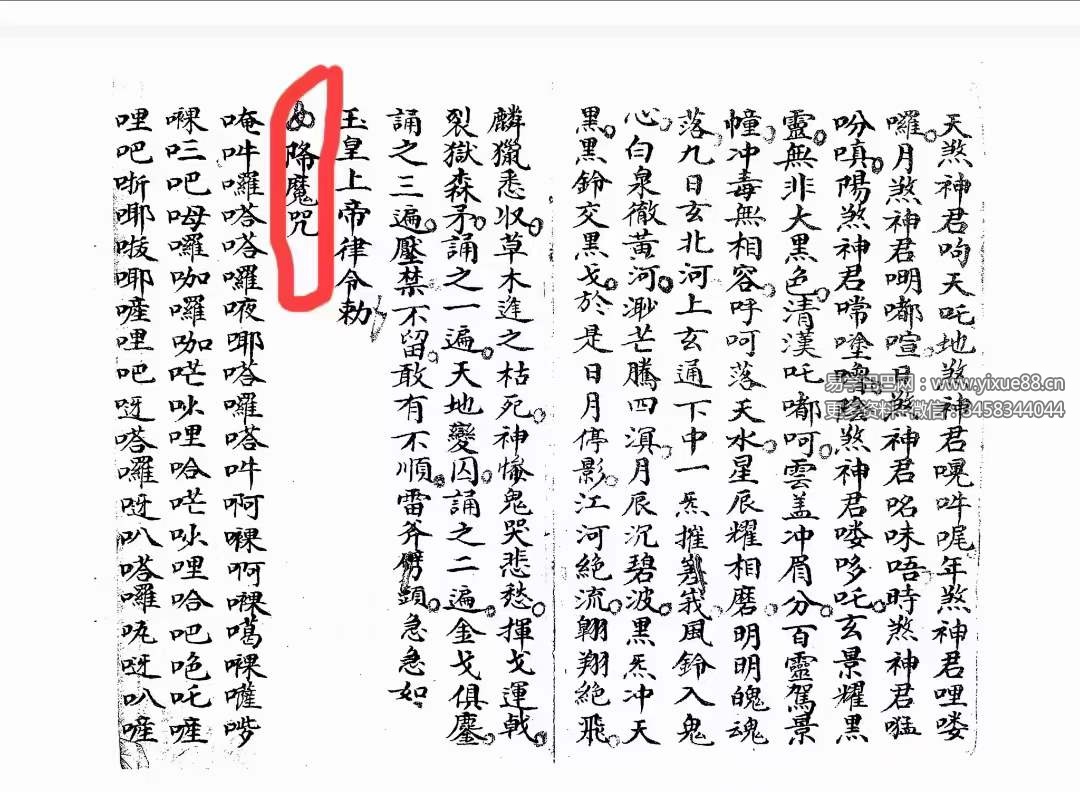 天煞神君呴天吒地煞神君㖠吽𡁠年煞神君哩喽
囉月煞神君明嘟喧日煞神君㕰味唔時煞神君猛
吩嗔陽煞神君嘗塗陰煞神君喽哆吒玄景耀黑
靈無非大黑色清漢吒嘟呵雲盖冲眉分百靈駕景
幢冲毒無相容呼呵落天水星辰耀相磨明明魄魂
落九日玄北河上玄通下中一炁摧峩風鈴入鬼
心白泉徹黃河渺茫騰四溟月辰沉碧波黑炁冲天
黑黑鈴交黑戈於是日月停影江河絶流翺翔絶飛
麟獵悉収草木進之枯死神慘鬼哭悲愁揮戈運戟
裂獄森矛誦之一遍天地變囚誦之二遍金戈俱鏖
誦之三遍壓禁不留敢有不順雷斧劈頭急急如
玉皇上帝律令勅
降魔咒
唵吽囉嗒嗒囉咉耶嗒囉嗒吽啊𠹌啊𠹌噶𠹌嚾哕
𠹌吅吧呣囉咖囉咖芒吣哩哈芒吣哩哈吧唈吒嗺
哩吧哳唧呶唧嗺哩吧呀嗒囉呀叭嗒囉吰呀叭嗺
易学巴巴网：www.yixue88.cn
更多资料+微信：3458344044